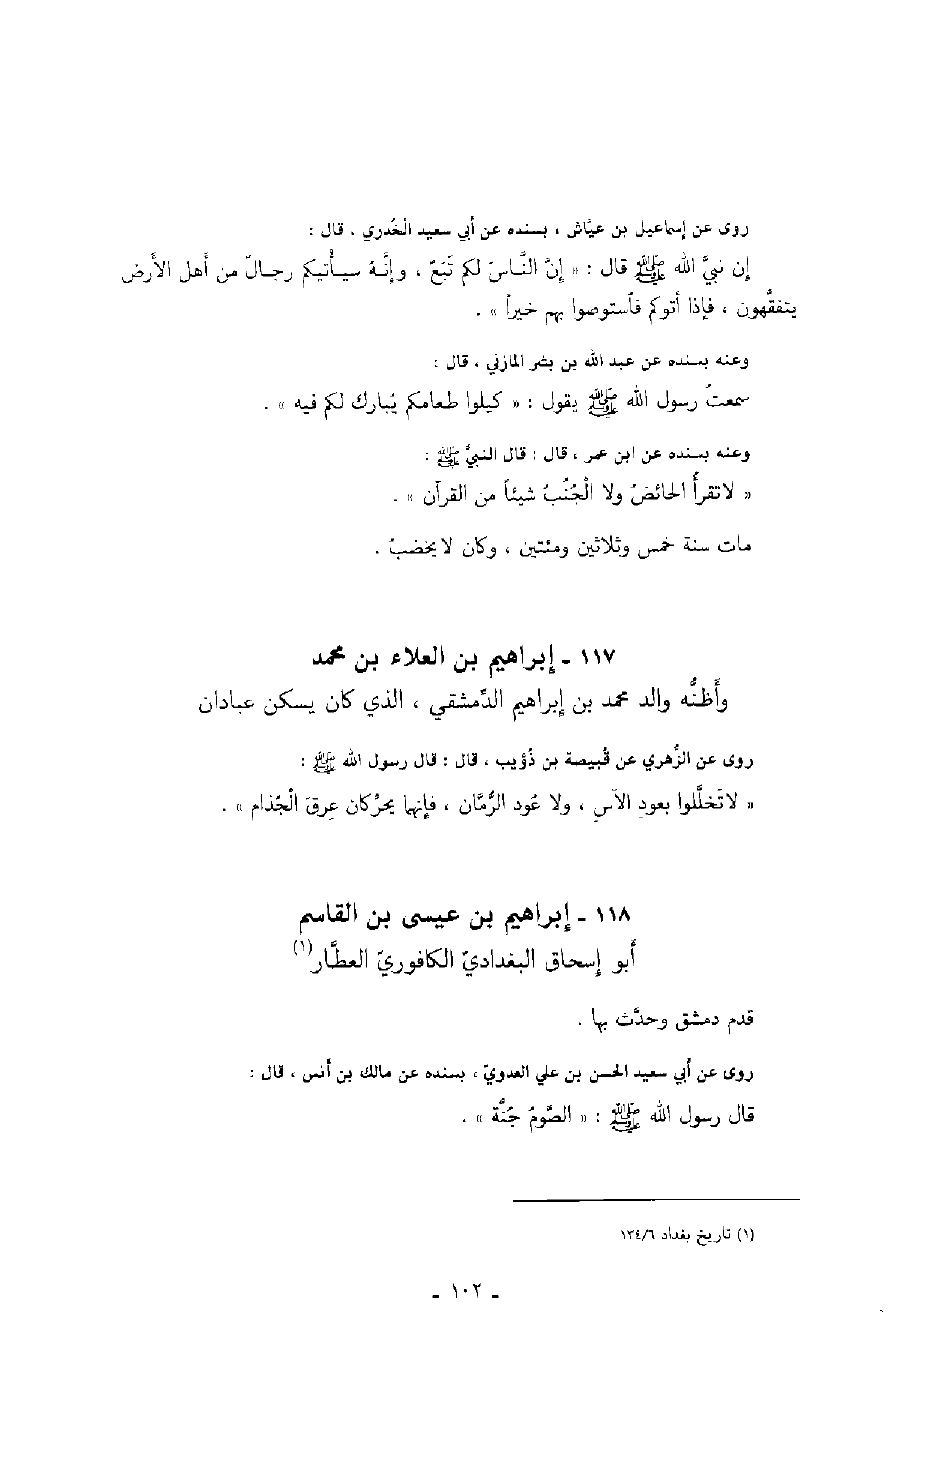 روى عن إسماعيل بن عيَّاش ، بسنده عن أبي سعيد الخُدري ، قال :
إن نبيَّ الله ﷺ قال : « إنَّ النَّاسَ لكم تَبَعٌ ، وإنَّهُ سيأتيكم رجالٌ من أهل الأرض
يتفقَّهون ، فإذا أتوكم فاستوصوا بهم خيراً » .
وعنه بسنده عن عبد الله بن بشر المازني ، قال :
سمعتُ رسول الله ﷺ يقول : « كيلوا طعامكم يُبارك لكم فيه » .
وعنه بسنده عن ابن عمر ، قال : قال النبيُّ ﷺ :
« لاتقرأُ الحائضُ ولا الْجُنُبُ شيئاً من القرآن » .
مات سنة خمس وثلاثين ومئتين ، وكان لا يخضبُ .
١١٧ - إبراهيم بن العلاء بن محمد
وأظنُّه والد محمد بن إبراهيم الدِّمشقي ، الذي كان يسكن عبادان
روى عن الزُهري عن قُبيصة بن ذُؤيب ، قال : قال رسول الله ﷺ :
« لاتَخلَّلوا بعودِ الآسِ ، ولا عُود الرُّمَّان ، فإنها يحرِّكان عِرقَ الْجُذام » .
١١٨ - إبراهيم بن عيسى بن القاسم
أبو إسحاق البغداديّ الكافوريّ العطَّار(١)
قدم دمشق وحدَّث بها .
روى عن أبي سعيد الحسن بن علي العدويّ ، بسنده عن مالك بن أنس ، قال :
قال رسول الله ﷺ : « الصَّومُ جُنَّة » .
(١) تاريخ بغداد ١٣٤/٦
- ١٠٢ -